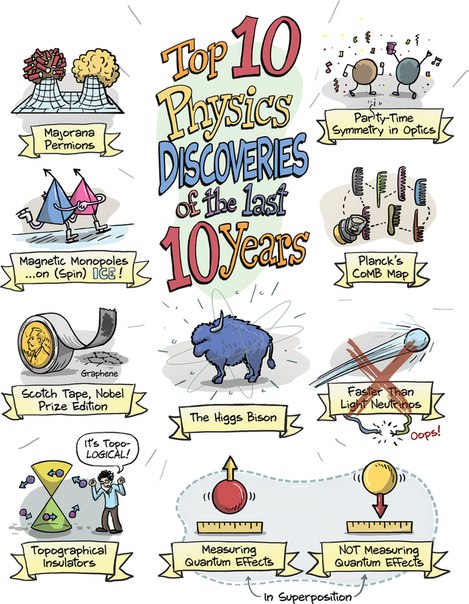 Top 10
Physics
DISCOVERIES
of the last
10 Years
Majorana
Permions
Party-Time
Symmetry in Optics
Magnetic Monopoles
...on (Spin) ICE!
Planck's
CoMB Map
Graphene
Scotch Tape, Nobel
Prize Edition
The Higgs Bison
Faster Than
Light Neutrinos
Oops!
It's Topo-
LOGICAL!
Topographical
Insulators
Measuring
Quantum Effects
NOT Measuring
Quantum Effects
In Superposition